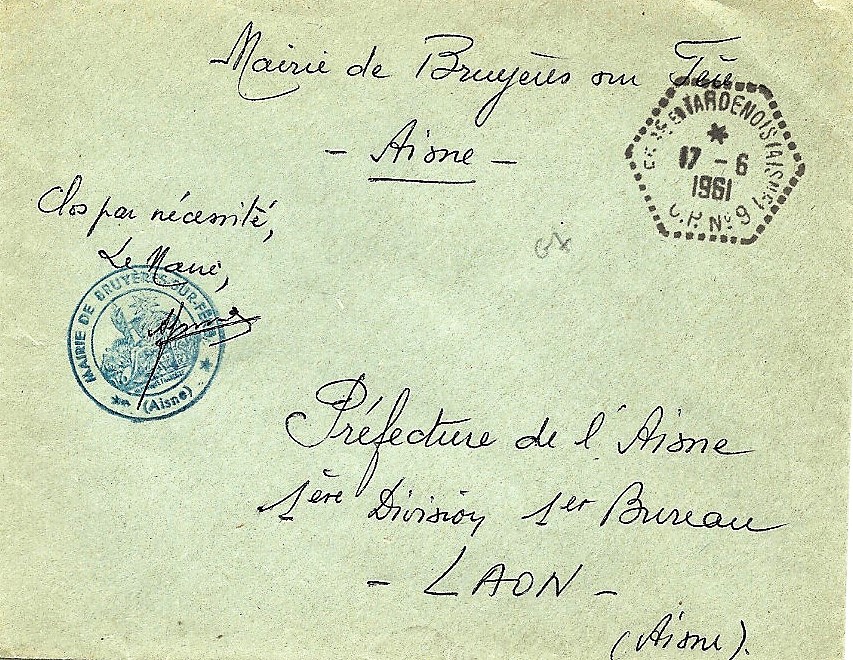 Mairie de Bruyères sur Fère
- Aisne -
FERE EN TARDENOIS (AISNE)
*
17 - 6
1961
C.P. N° 9
Clos par nécessité,
Le Maire,
MAIRIE DE BRUYÈRES-SUR-FÈRE
(Aisne)
Préfecture de l'Aisne
1ère Division 1er Bureau
- LAON -
(Aisne).